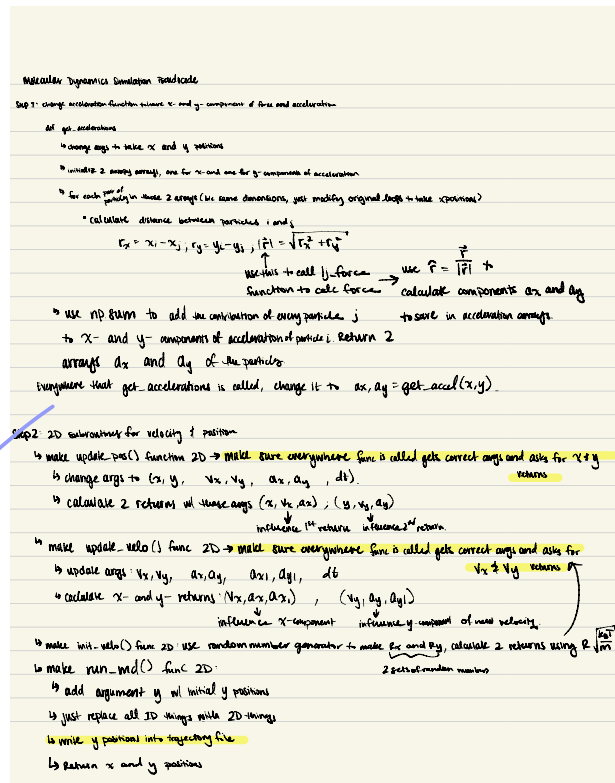 Molecular Dynamics Simulation Pseudocode
Step 1: change acceleration function to have x- and y-component of force and acceleration
def get_accelerations
↳ change args to take x and y positions
↳ initialize 2 arrays, one for x- and one for y-components of acceleration
↳ for each pair of particles in those 2 arrays (b/c same dimensions, just modify original loops to take x positions)
• calculate distance between particles i and j
rx = xi - xj ; ry = yi - yj ; |r⃗| = √(rx² + ry²)
use this to call lj_force function to calc force → use r̂ = r⃗/|r⃗| to calculate components ax and ay to save in acceleration arrays
↳ use np.sum to add the contribution of every particle j
to x- and y- components of acceleration of particle i. Return 2
arrays ax and ay of the particles
Everywhere that get_accelerations is called, change it to ax, ay = get_accel(x,y)
Step 2: 2D subroutines for velocity & position
↳ make update_pos() function 2D → make sure everywhere func is called gets correct args and asks for x & y returns
↳ change args to (x, y, vx, vy, ax, ay, dt).
↳ calculate 2 returns w/ these args (x, vx, ax) ; (y, vy, ay)
influence 1st return influence 2nd return
↳ make update_velo() func 2D → make sure everywhere func is called gets correct args and asks for
vx & vy returns
↳ update args: vx, vy, ax, ay, ax1, ay1, dt
↳ calculate x- and y- returns: (vx, ax, ax1) , (vy, ay, ay1)
influence x-component influence y component of new velocity.
↳ make init_velo() func 2D: use random number generator to make Rx and Ry, calculate 2 returns using R √(kBT/m)
2 sets of random numbers
↳ make run_md() func 2D:
↳ add argument y w/ initial y positions
↳ just replace all 1D things with 2D things
↳ write y positions into trajectory file
↳ Return x and y positions